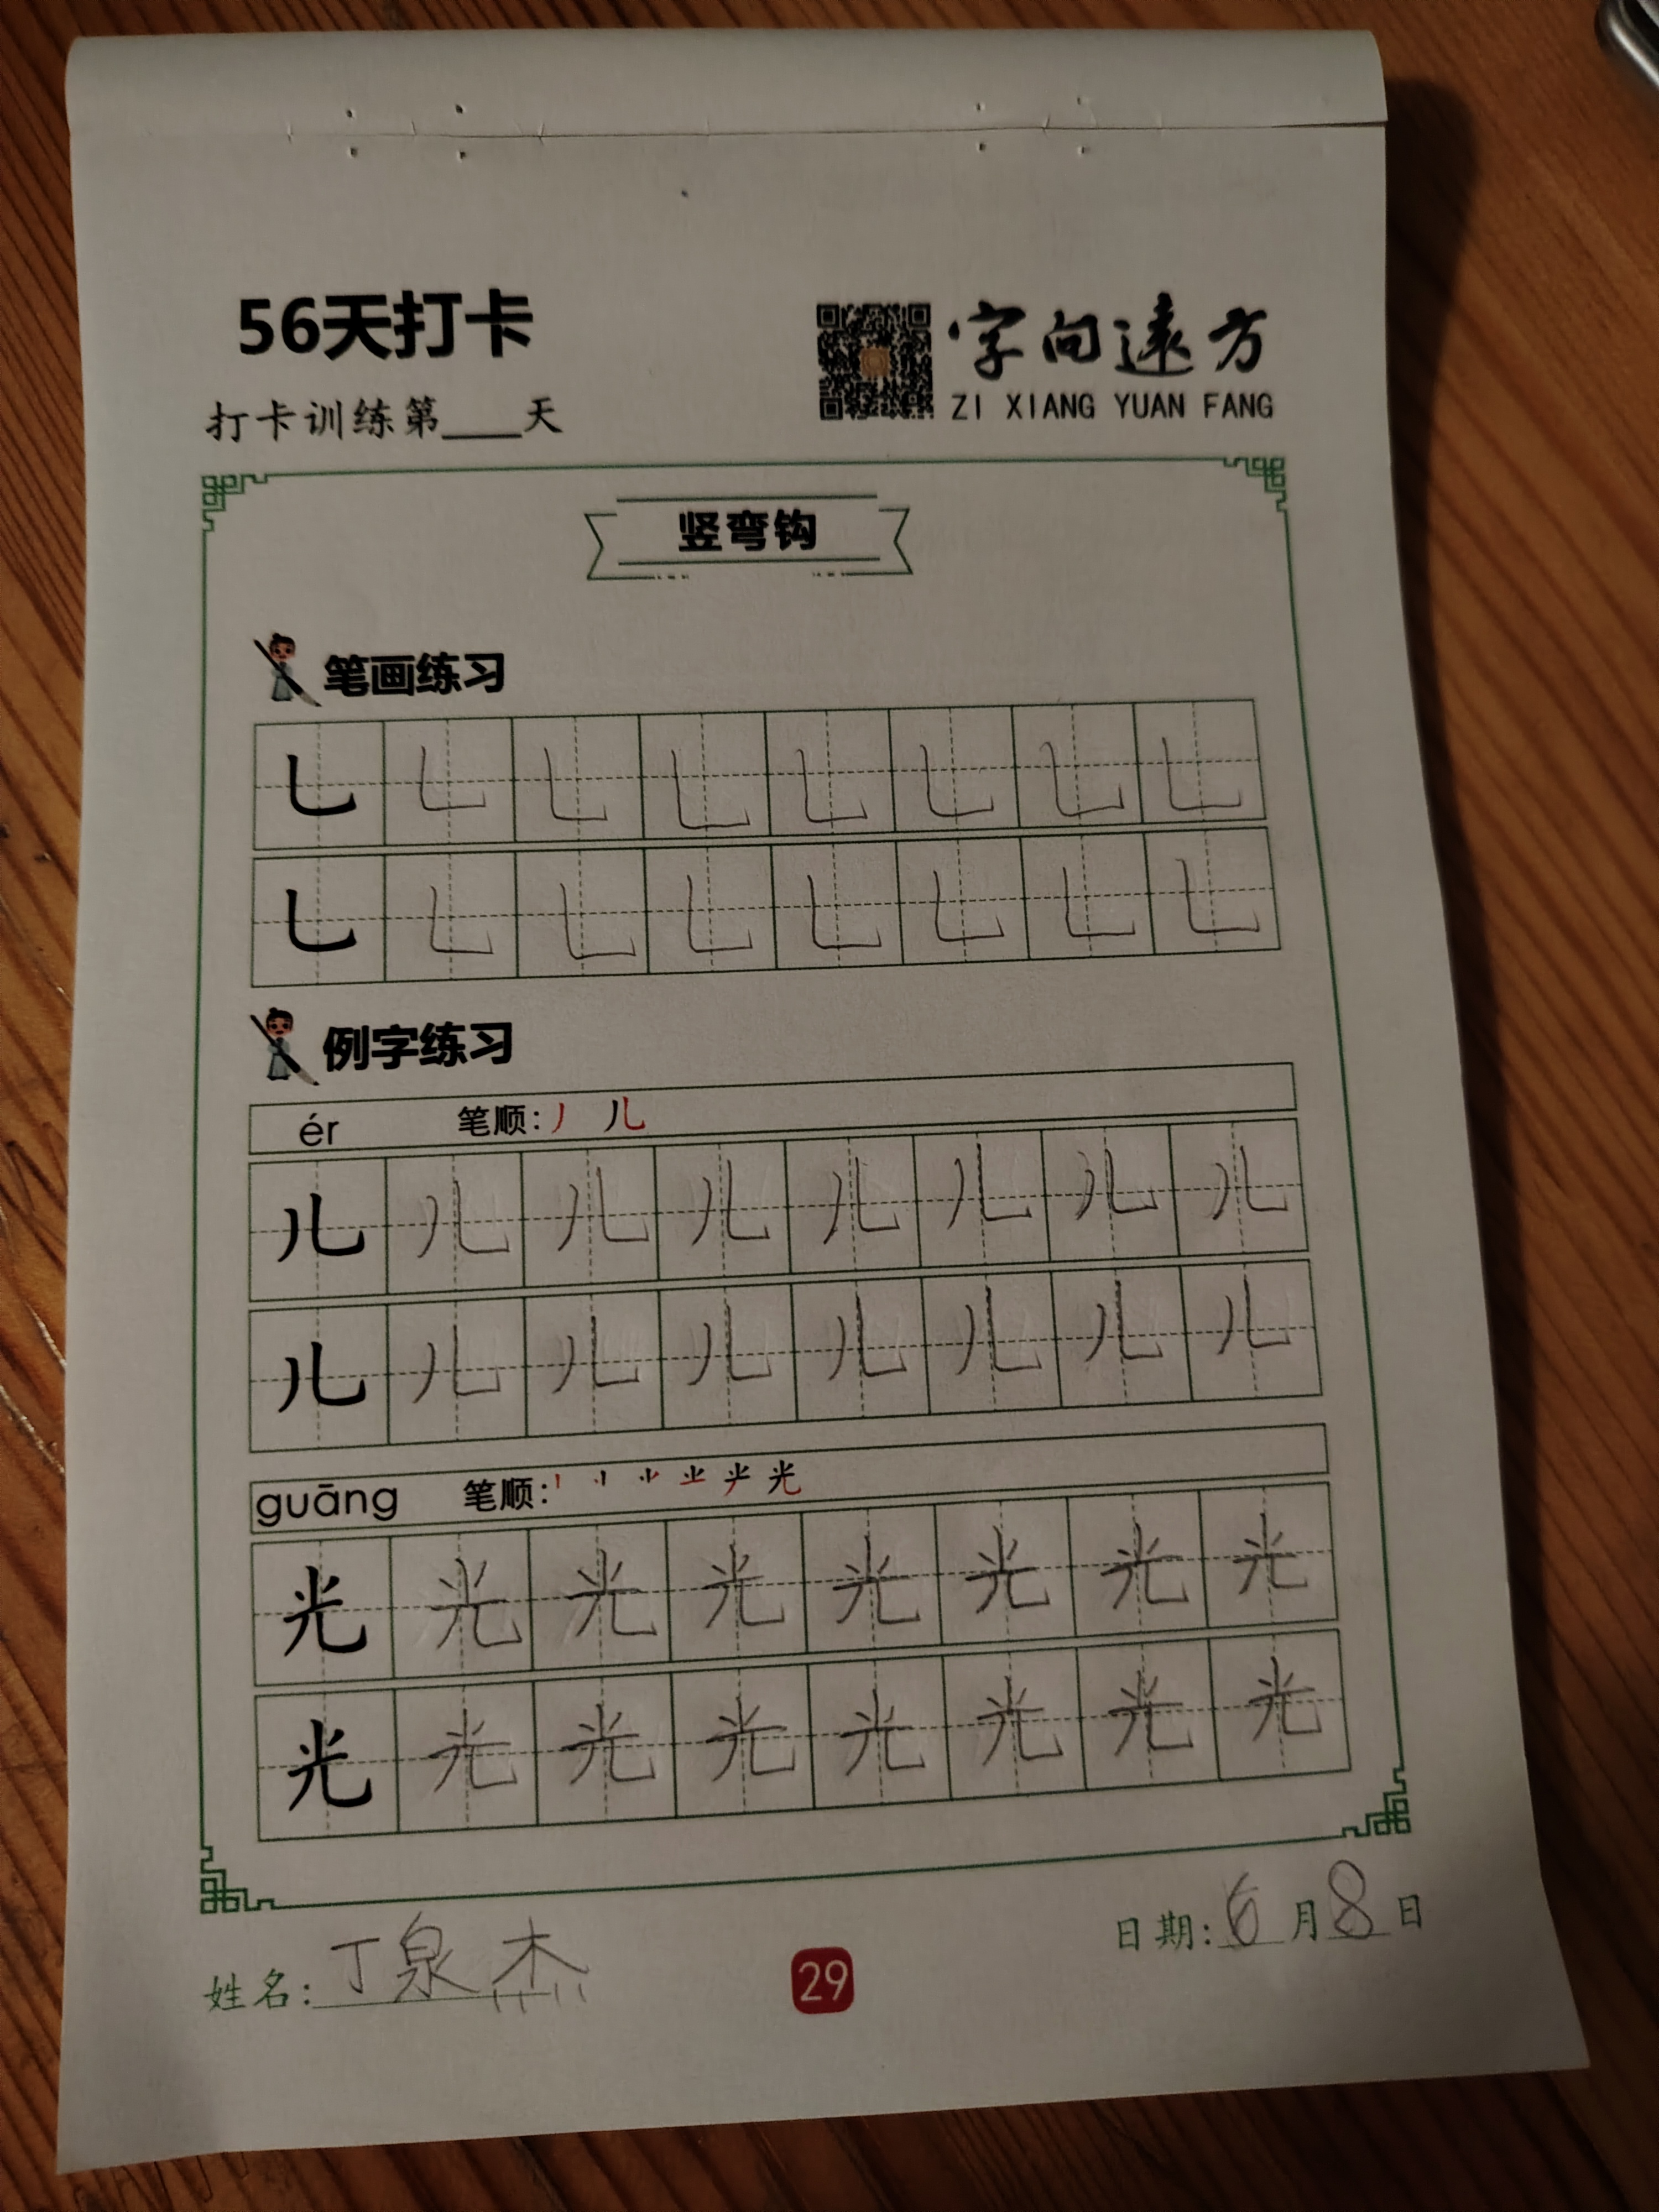 56天打卡
字向遠方
打卡训练第___天
ZI XIANG YUAN FANG
竖弯钩
笔画练习
乚 乚 乚 乚 乚 乚 乚 乚
乚 乚 乚 乚 乚 乚 乚 乚
例字练习
ér 笔顺:丿 儿
儿 儿 儿 儿 儿 儿 儿 儿
儿 儿 儿 儿 儿 儿 儿 儿
guāng 笔顺: 光
光 光 光 光 光 光 光 光
光 光 光 光 光 光 光 光
姓名:丁泉杰
29
日期:6月8日